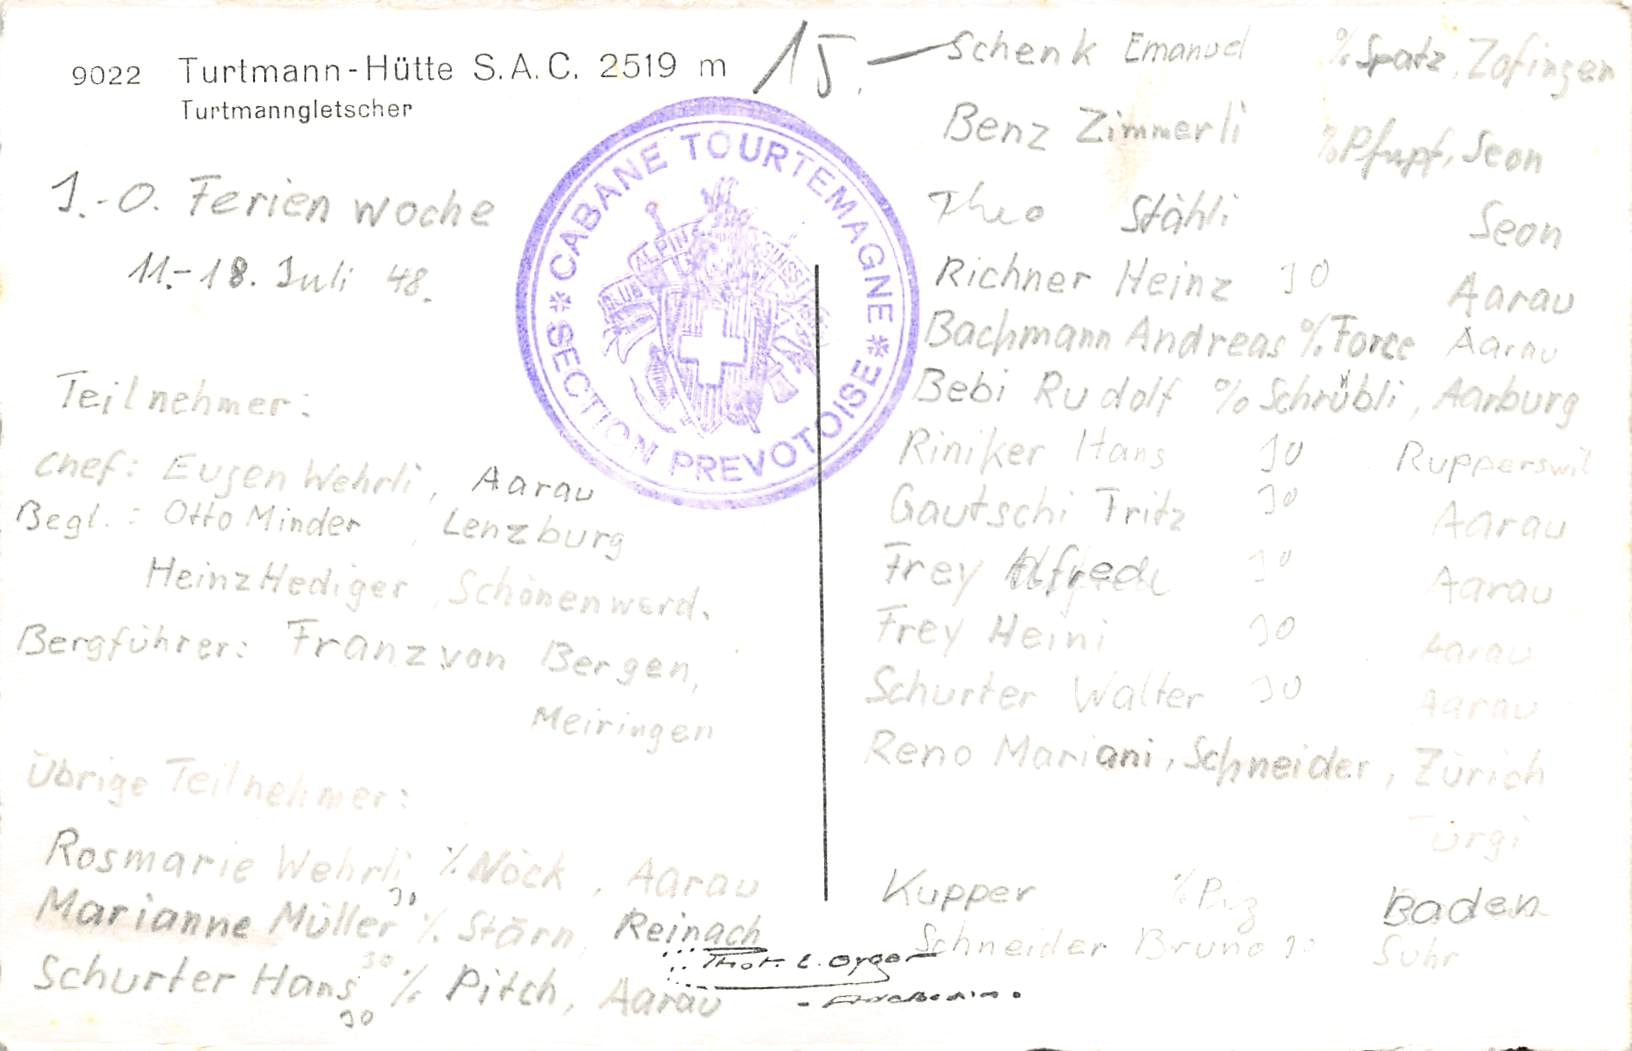 9022 Turtmann-Hütte S.A.C. 2519 m
Turtmanngletscher
1.-O. Ferienwoche
11.-18. Juli 48.
Teilnehmer:
Chef: Eugen Wehrli, Aarau
Begl.: Otto Minder, Lenzburg
Heinz Hediger, Schönenwerd.
Bergführer: Franz von Bergen,
Meiringen
Übrige Teilnehmer:
Rosmarie Wehrli % Nöck, Aarau
Marianne Müller JO % Stärn, Reinach
Schurter Hans JO % Pitch, Aarau
CABANE TOURTEMAGNE
SECTION PREVOTOISE
CLUB ALPIN SUISSE
15.
Schenk Emanuel % Spatz, Zofingen
Benz Zimmerli % Pfupf, Seon
Theo Stähli Seon
Richner Heinz JO Aarau
Bachmann Andreas % Force Aarau
Bebi Rudolf % Schrübli, Aarburg
Riniker Hans JO Rupperswil
Gautschi Fritz JO Aarau
Frey Alfred JO Aarau
Frey Heini JO Aarau
Schurter Walter JO Aarau
Reno Mariani, Schneider, Zürich
Turgi
Kupper Baden
Schneider Bruno JO Suhr
Phot.